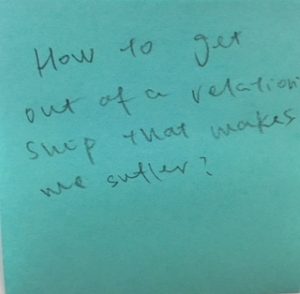 How to get
out of a relation
ship that makes
me suffer?